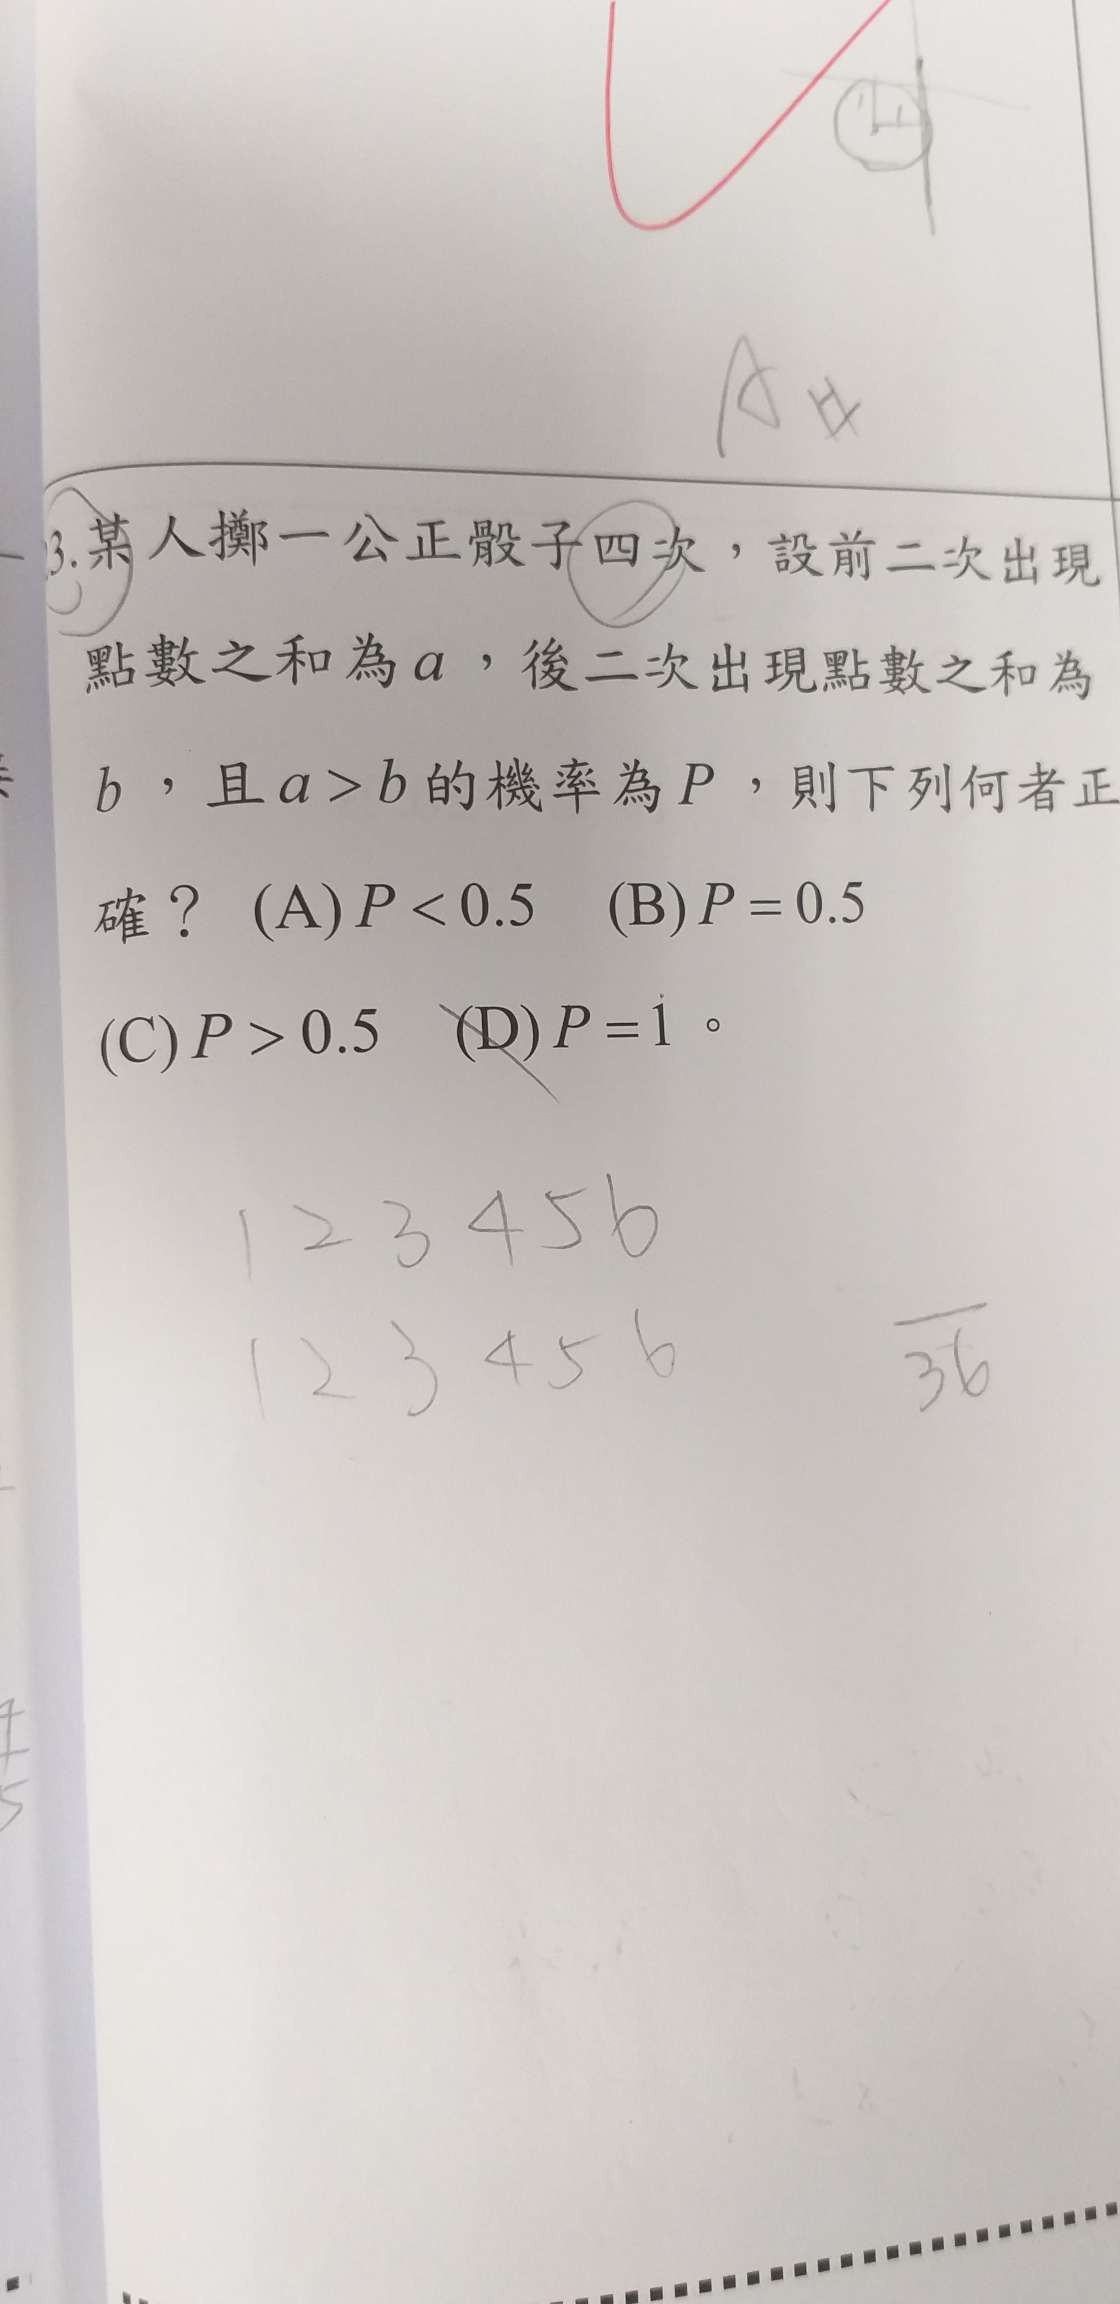 A
3.某人擲一公正骰子四次，設前二次出現
點數之和為a，後二次出現點數之和為
b，且a>b的機率為P，則下列何者正
確？ (A)P<0.5 (B)P=0.5
(C)P>0.5 (D)P=1。
1 2 3 4 5 6
1 2 3 4 5 6
36